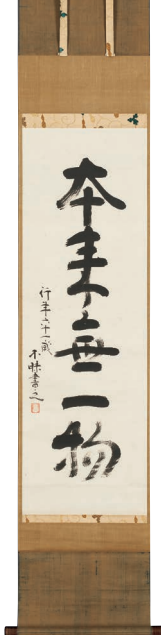 本来無一物
行年六十一歳
不昧書之